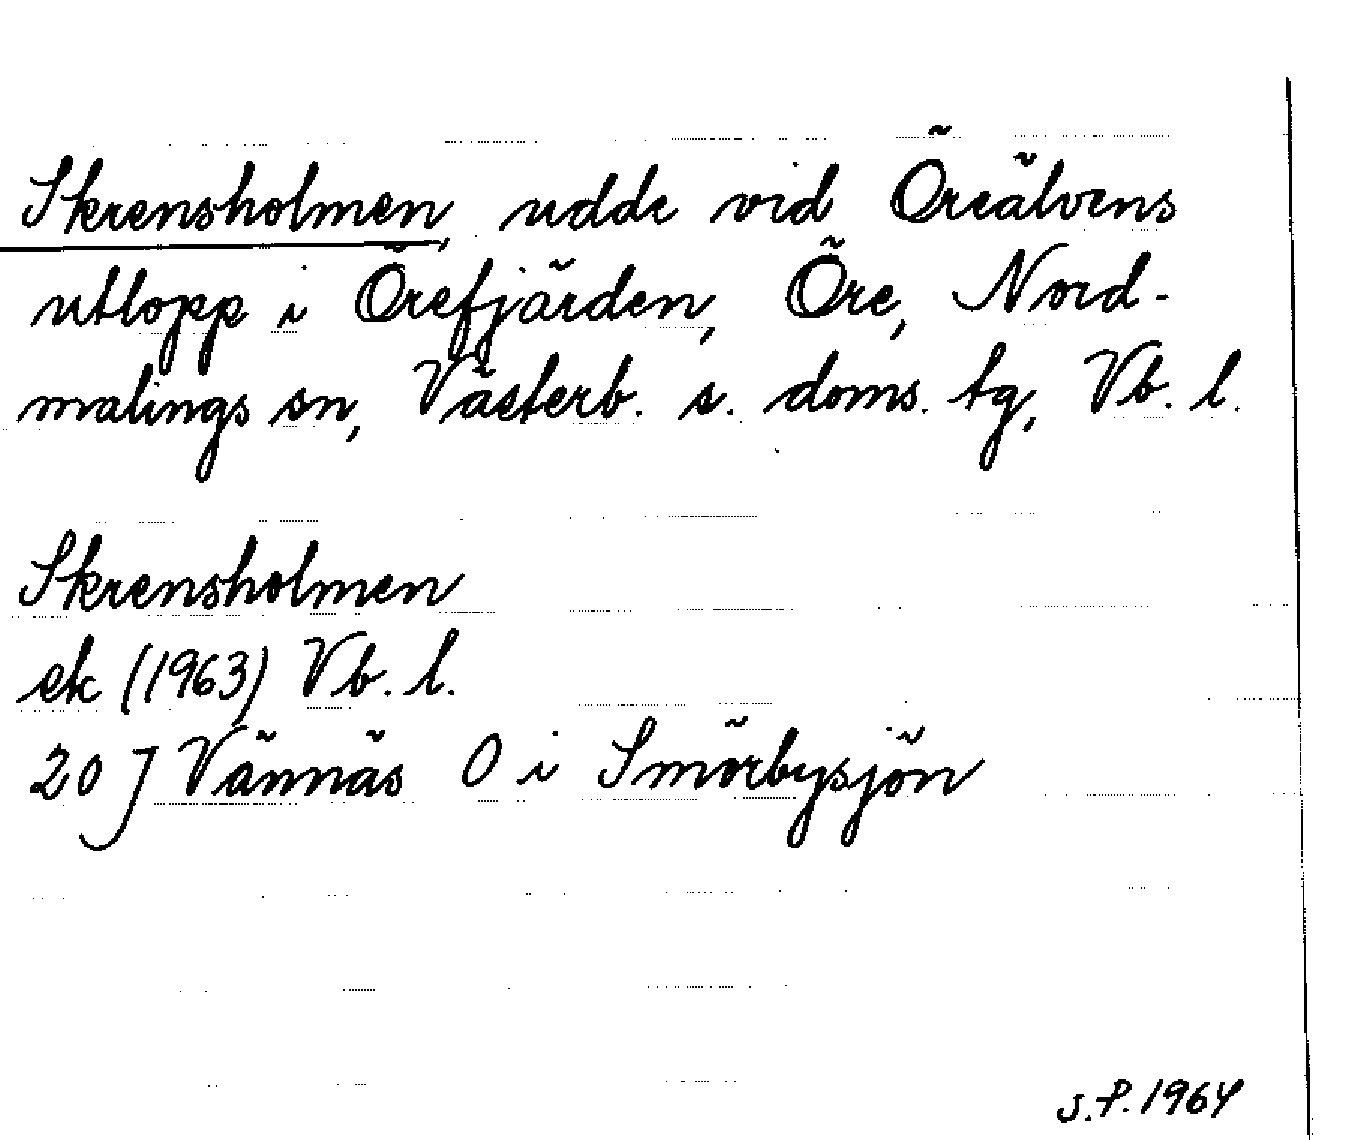 Skrensholmen, udde vid Öreälvens
utlopp i Örefjärden, Öre, Nord-
malings sn, Västerb. s. doms. tg, Vb. l.
Skrensholmen
ek (1963) Vb. l.
20 J Vännäs 0 i Smörbysjön
J.P. 1964